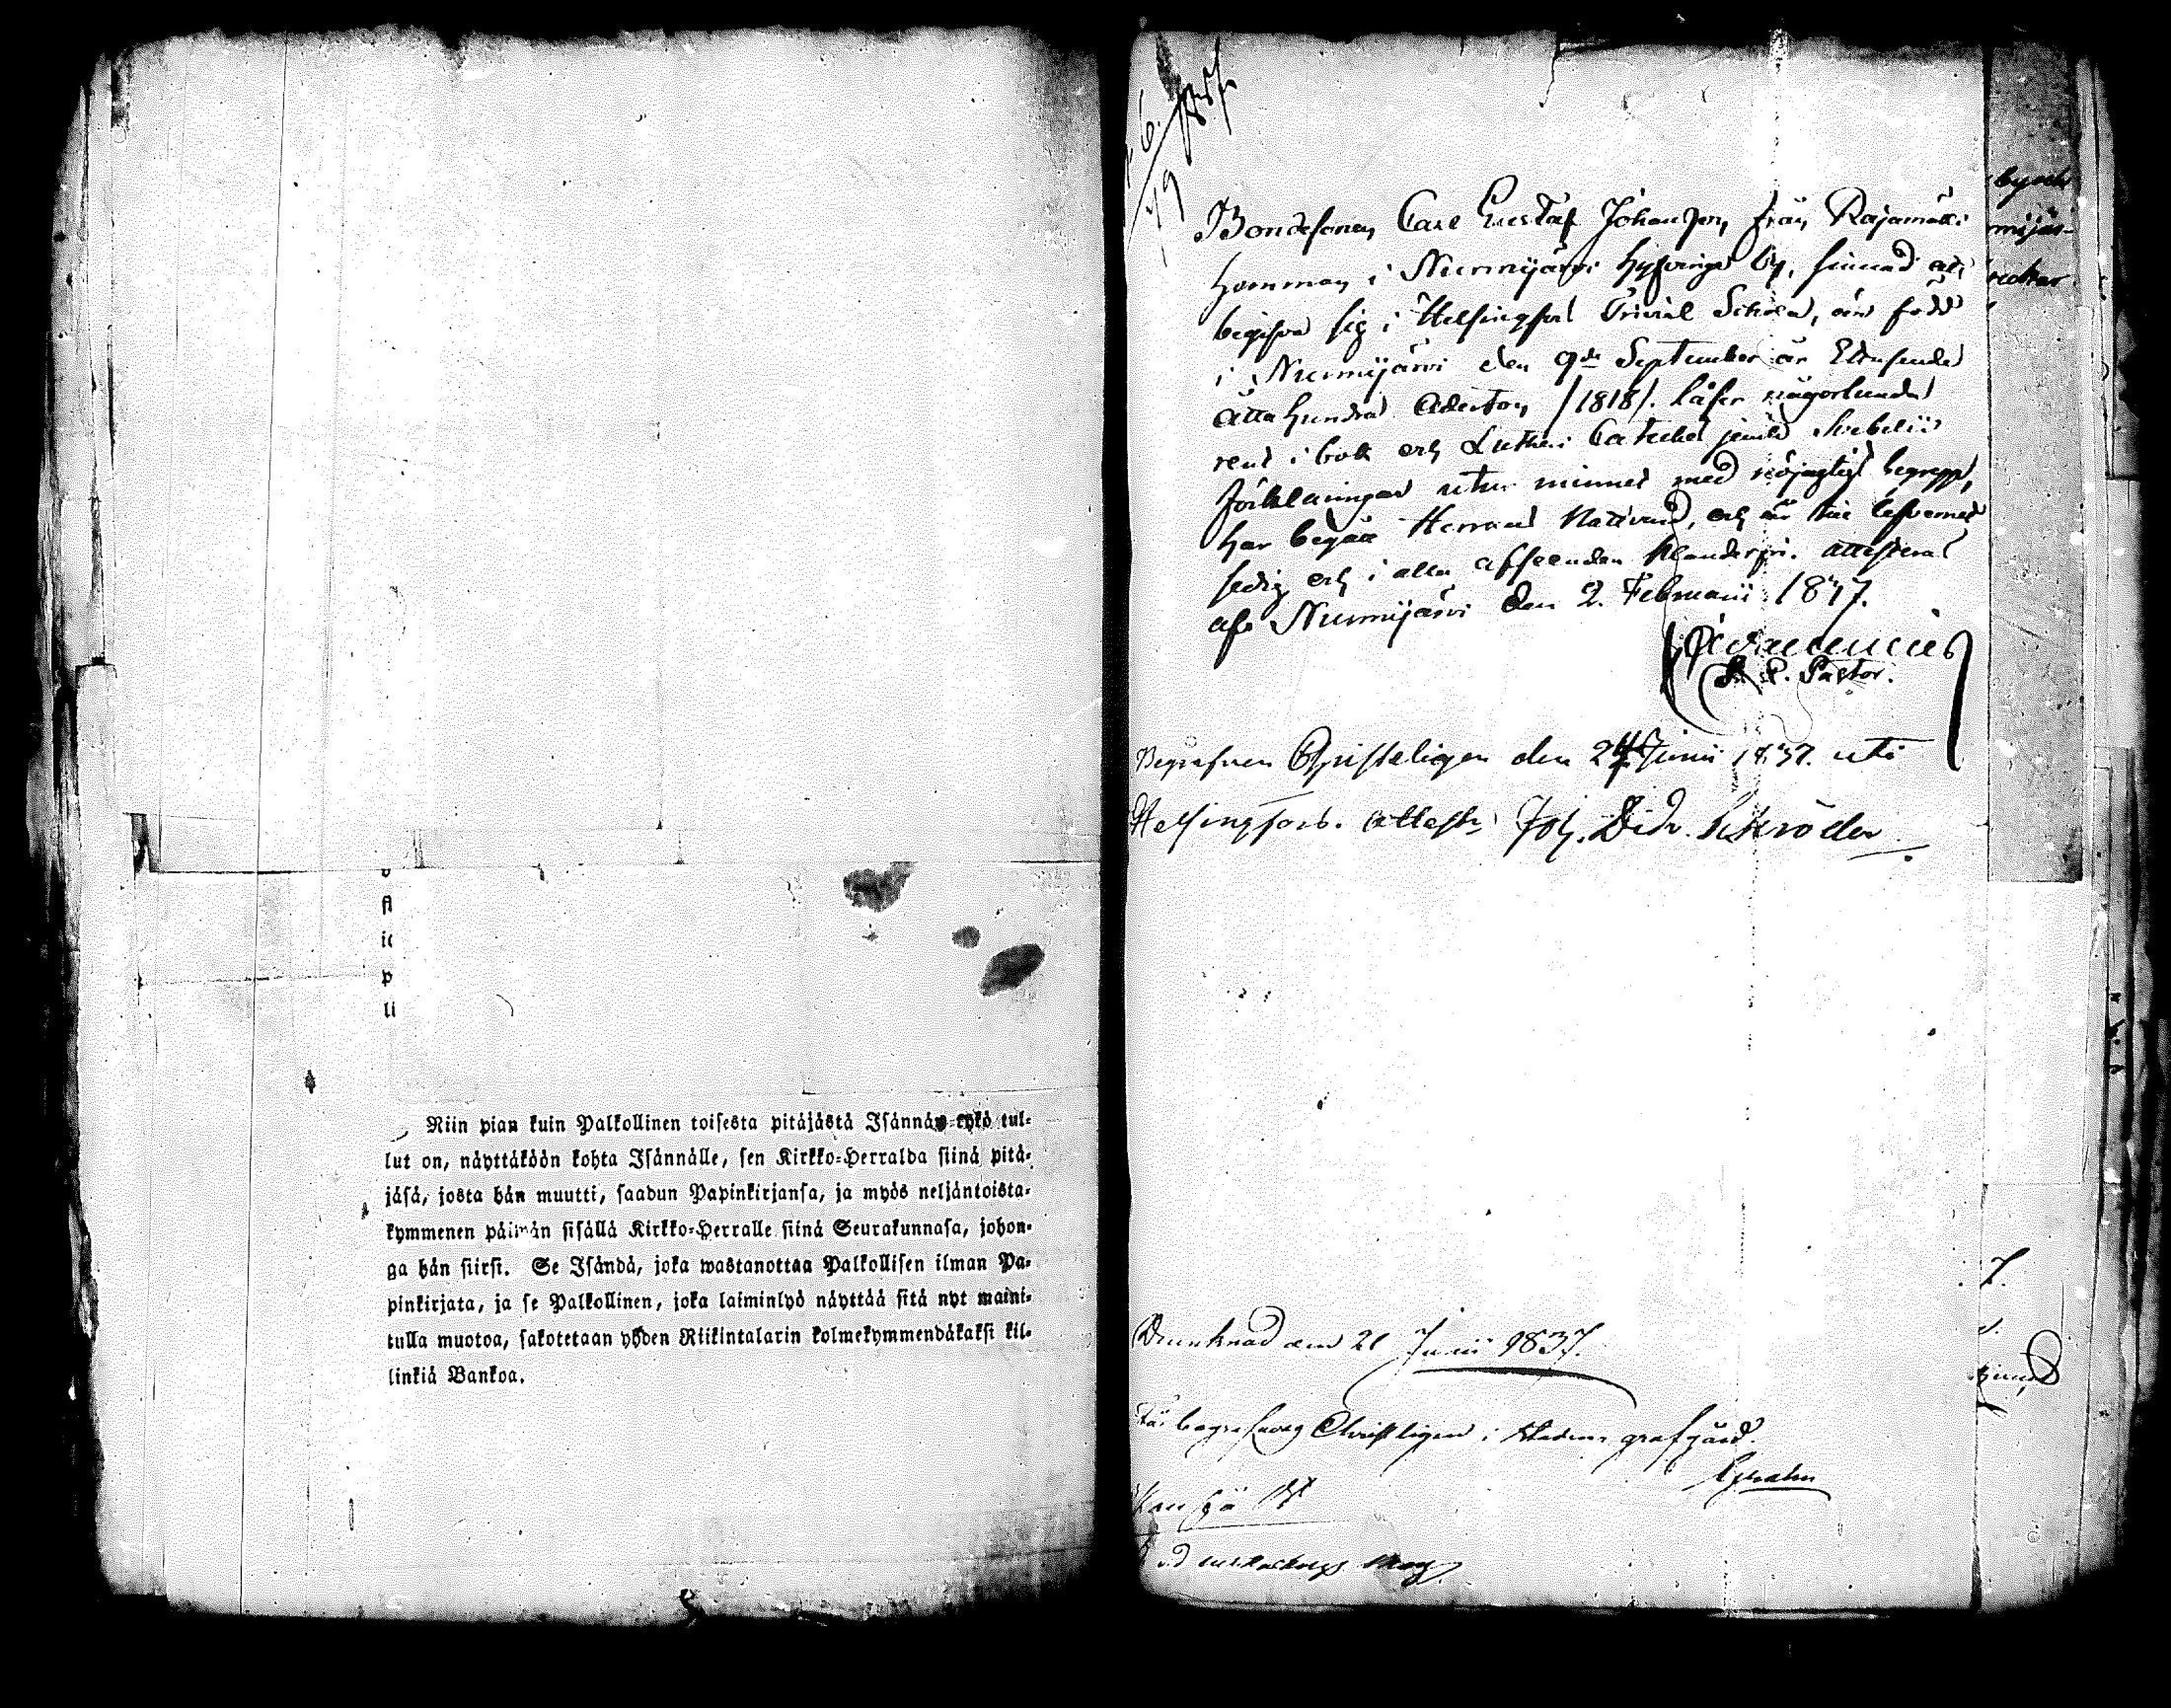 Niin pian kuin Palkollinen toisesta pitäjästä Isännän tykö tul-
lut on, näyttäköön kohta Isännälle, sen Kirkko-Herralda siinä pitä-
jäsä, josta hän muutti, saadun Papinkirjansa, ja myös neljäntoista-
kymmenen päiwän sisällä Kirkko-Herralle siinä Seurakunnasa, johon-
ga hän siirsi. Se Isändä, joka wastanottaa Palkollisen ilman Pa-
pinkirjata, ja se Palkollinen, joka laiminlyö näyttää sitä nyt maini-
tulla muotoa, sakotetaan yhden Riikintalarin kolmekymmendäkaksi kil-
linkiä Bankoa.
Bondesonen Carl Gustaf Johansson från Rajamäki
hemman i Nurmijärvi Hyfvinge by, sinnad att
begifva sig i Helsingfors Trivial Schola, är född
i Nurmijärvi den 9de September år Ettusende
Åtta Hundrad Aderton /1818/. Läser någorlunda
rent i bok och Lutheri Cateches jemte Svebelii
förklaringar utur minnet med nöjagtigt begrepp,
har begått Herrans Nattvard, och är till lefvernet
sedig och i alla afseenden klanderfri. attesteras
af Nurmijärvi den 2. Februarii 1837.
Pastor.
Begrafven Christeligen den 24 Junii 1837. uti
Helsingfors. attest. Joh. Didr. Schröder
Drunknad den 21 Junii 1837.
Får begrafvas Christligen i stadens grafgård.